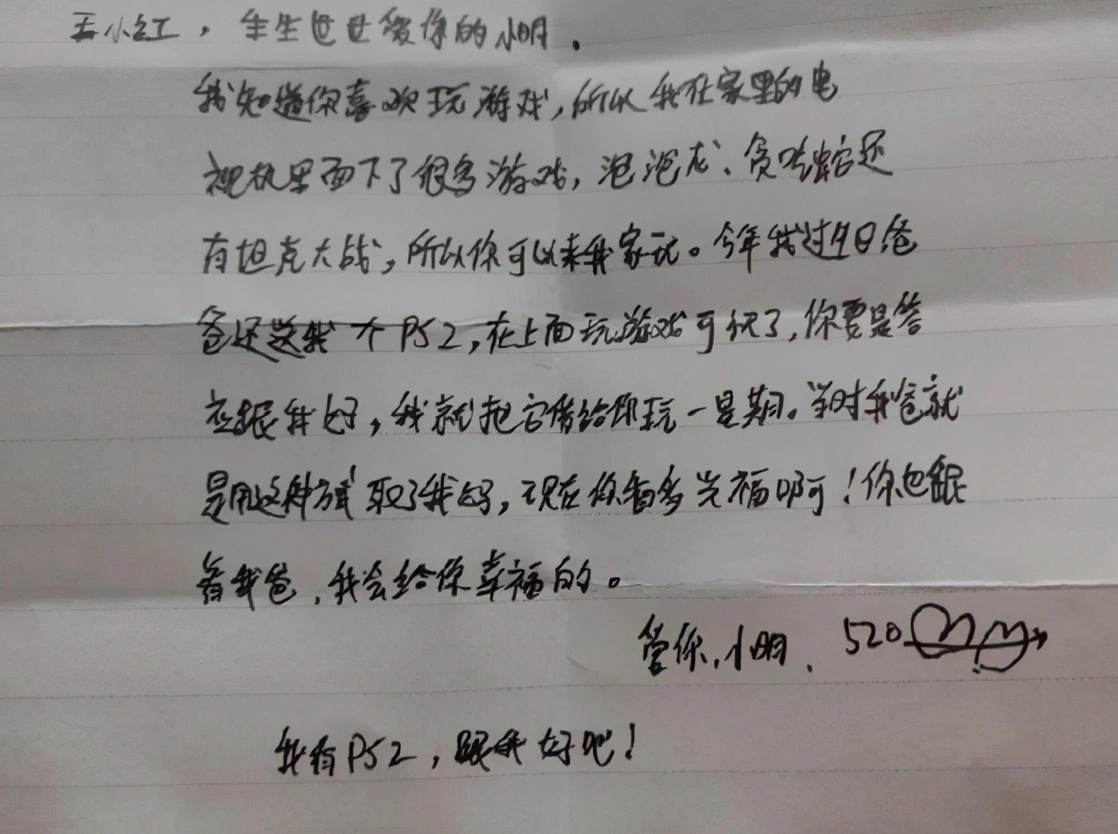 王小红，生生世世爱你的小明.
我知道你喜欢玩游戏，所以我在家里的电
视机里面下了很多游戏，泡泡龙、贪吃蛇还
有坦克大战，所以你可以来我家玩。今年我过生日爸
爸还送我一个PS2，在上面玩游戏可快了，你要是答
应跟我好，我就把它借给你玩一星期。当时我爸就
是用这种方式取了我妈，现在你看多幸福啊！你也跟
着我爸，我会给你幸福的。
爱你，小明. 520
我有PS2，跟我好吧！